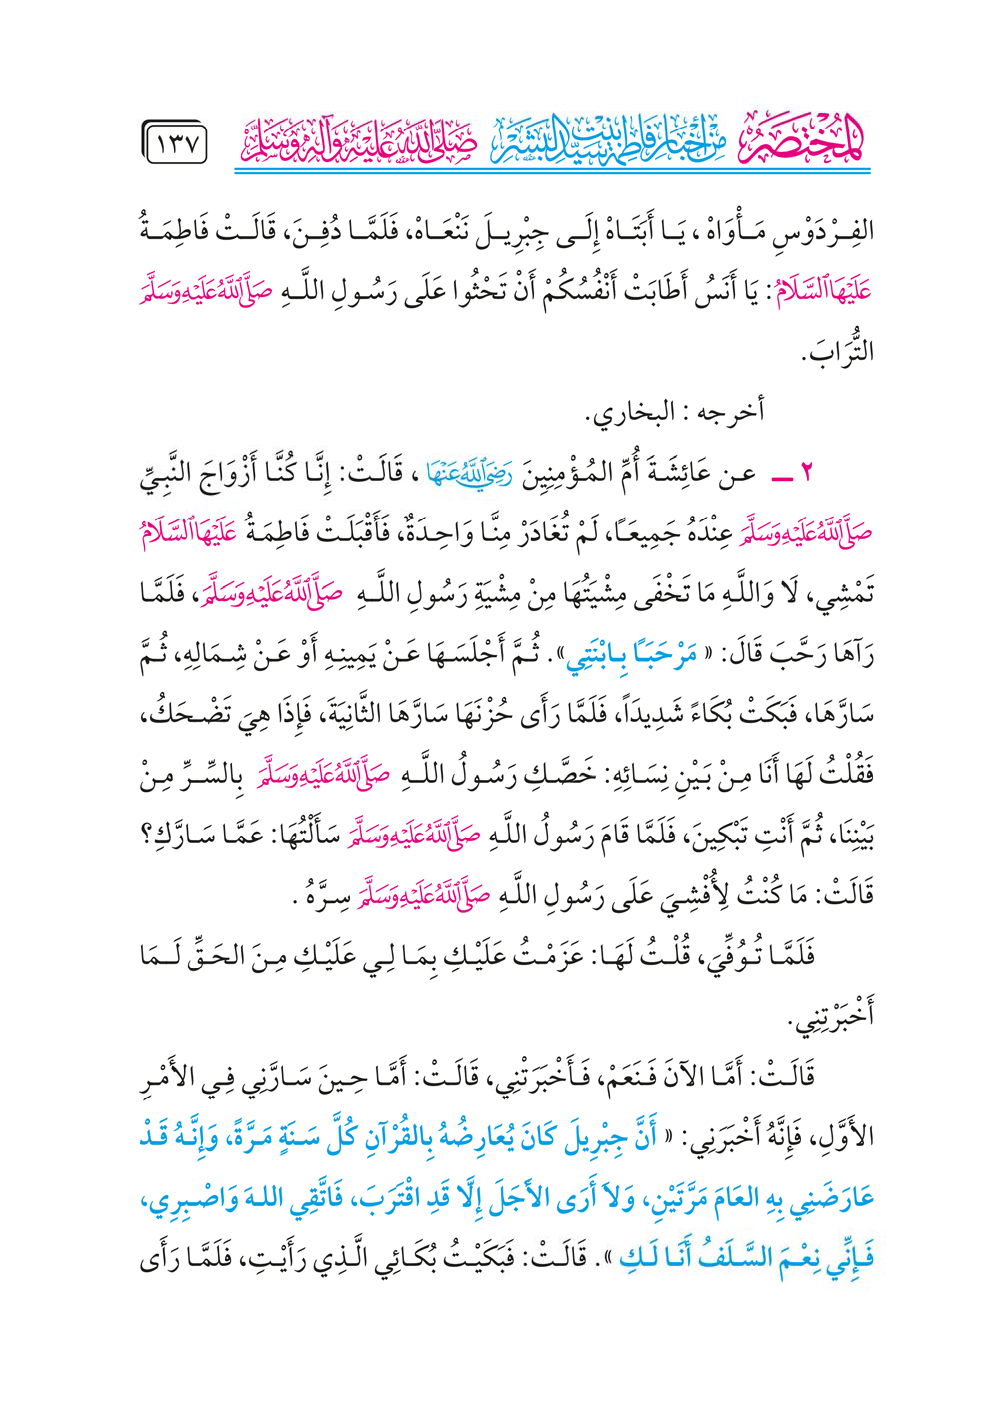 المُخْتَصَرُ مِنْ أَخْبَارِ فَاطِمَةَ بِنْتِ سَيِّدِ البَشَرِ صَلَّى اللَّهُ عَلَيْهِ وَآلِهِ وَسَلَّمَ ١٣٧
الفِرْدَوْسِ مَأْوَاهْ ، يَا أَبَتَاهْ إِلَى جِبْرِيلَ نَنْعَاهْ، فَلَمَّا دُفِنَ، قَالَتْ فَاطِمَةُ
عَلَيْهَا السَّلَامُ: يَا أَنَسُ أَطَابَتْ أَنْفُسُكُمْ أَنْ تَحْثُوا عَلَى رَسُولِ اللَّهِ صَلَّى اللَّهُ عَلَيْهِ وَسَلَّمَ
التُّرَابَ.
أخرجه : البخاري.
٢ ـ عن عَائِشَةَ أُمِّ المُؤْمِنِينَ رَضِيَ اللَّهُ عَنْهَا ، قَالَتْ: إِنَّا كُنَّا أَزْوَاجَ النَّبِيِّ
صَلَّى اللَّهُ عَلَيْهِ وَسَلَّمَ عِنْدَهُ جَمِيعَاً، لَمْ تُغَادَرْ مِنَّا وَاحِدَةٌ، فَأَقْبَلَتْ فَاطِمَةُ عَلَيْهَا السَّلَامُ
تَمْشِي، لَا وَاللَّهِ مَا تَخْفَى مِشْيَتُهَا مِنْ مِشْيَةِ رَسُولِ اللَّهِ صَلَّى اللَّهُ عَلَيْهِ وَسَلَّمَ، فَلَمَّا
رَآهَا رَحَّبَ قَالَ: « مَرْحَبَاً بِابْنَتِي». ثُمَّ أَجْلَسَهَا عَنْ يَمِينِهِ أَوْ عَنْ شِمَالِهِ، ثُمَّ
سَارَّهَا، فَبَكَتْ بُكَاءً شَدِيدَاً، فَلَمَّا رَأَى حُزْنَهَا سَارَّهَا الثَّانِيَةَ، فَإِذَا هِيَ تَضْحَكُ،
فَقُلْتُ لَهَا أَنَا مِنْ بَيْنِ نِسَائِهِ: خَصَّكِ رَسُولُ اللَّهِ صَلَّى اللَّهُ عَلَيْهِ وَسَلَّمَ بِالسِّرِّ مِنْ
بَيْنِنَا، ثُمَّ أَنْتِ تَبْكِينَ، فَلَمَّا قَامَ رَسُولُ اللَّهِ صَلَّى اللَّهُ عَلَيْهِ وَسَلَّمَ سَأَلْتُهَا: عَمَّا سَارَّكِ؟
قَالَتْ: مَا كُنْتُ لِأُفْشِيَ عَلَى رَسُولِ اللَّهِ صَلَّى اللَّهُ عَلَيْهِ وَسَلَّمَ سِرَّهُ .
فَلَمَّا تُوُفِّيَ، قُلْتُ لَهَا: عَزَمْتُ عَلَيْكِ بِمَا لِي عَلَيْكِ مِنَ الحَقِّ لَمَا
أَخْبَرْتِنِي.
قَالَتْ: أَمَّا الآنَ فَنَعَمْ، فَأَخْبَرَتْنِي، قَالَتْ: أَمَّا حِينَ سَارَّنِي فِي الأَمْرِ
الأَوَّلِ، فَإِنَّهُ أَخْبَرَنِي: « أَنَّ جِبْرِيلَ كَانَ يُعَارِضُهُ بِالقُرْآنِ كُلَّ سَنَةٍ مَرَّةً، وَإِنَّهُ قَدْ
عَارَضَنِي بِهِ العَامَ مَرَّتَيْنِ، وَلَا أَرَى الأَجَلَ إِلَّا قَدِ اقْتَرَبَ، فَاتَّقِي اللهَ وَاصْبِرِي،
فَإِنِّي نِعْمَ السَّلَفُ أَنَا لَكِ ». قَالَتْ: فَبَكَيْتُ بُكَائِي الَّذِي رَأَيْتِ، فَلَمَّا رَأَى